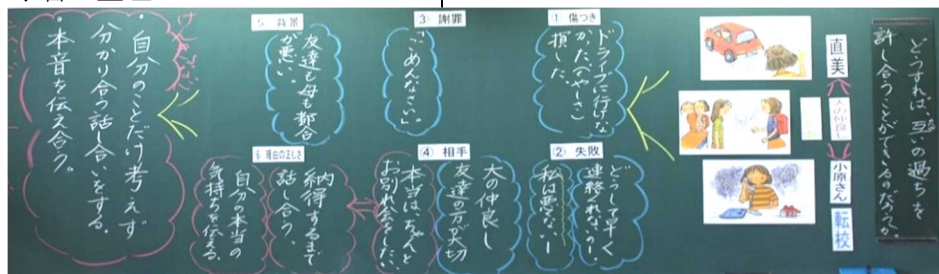 どうすれば、互いの過ちを
許し合うことができるのだろうか。
直美
大の仲良し
小原さん
転校
① 傷つき
ドライブに行けな
かった。(くやしさ)
損した。
② 失敗
どうして早く
連絡くれないの!
私は悪くない!
③ 謝罪
「ごめんなさい。」
④ 相手
大の仲良し
友達の方が大切
本当は、ちゃんと
お別れ会をしたい
5 背景
友達も母も都合
が悪い。
6 理由の正しさ
納得するまで
話し合う。
自分の本当の
気持ちを伝える。
・自分のことだけ考えず
分かり合う話し合いをする。
本音を伝え合う。